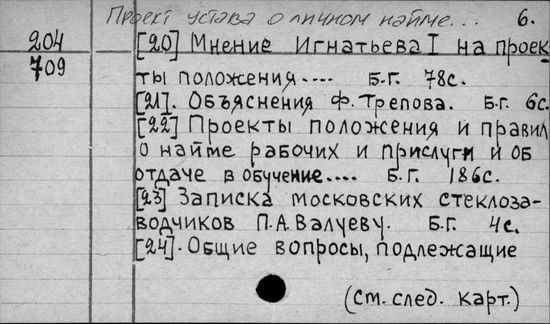 Проект устава о личном найме... 6.
204 [20] Мнение Игнатьева I на проек
709 ты положения.... Б.Г. 78с.
[21]. Объяснения Ф. Трепова. Б.Г. 6с.
[22] Проекты положения и правил
о найме рабочих и прислуги и об
отдаче в обучение.... Б.Г. 186с.
[23] Записка московских стеклоза-
водчиков П.А. Валуеву. Б.Г. 4с.
[24]. Общие вопросы, подлежащие
(ст. след. карт.)